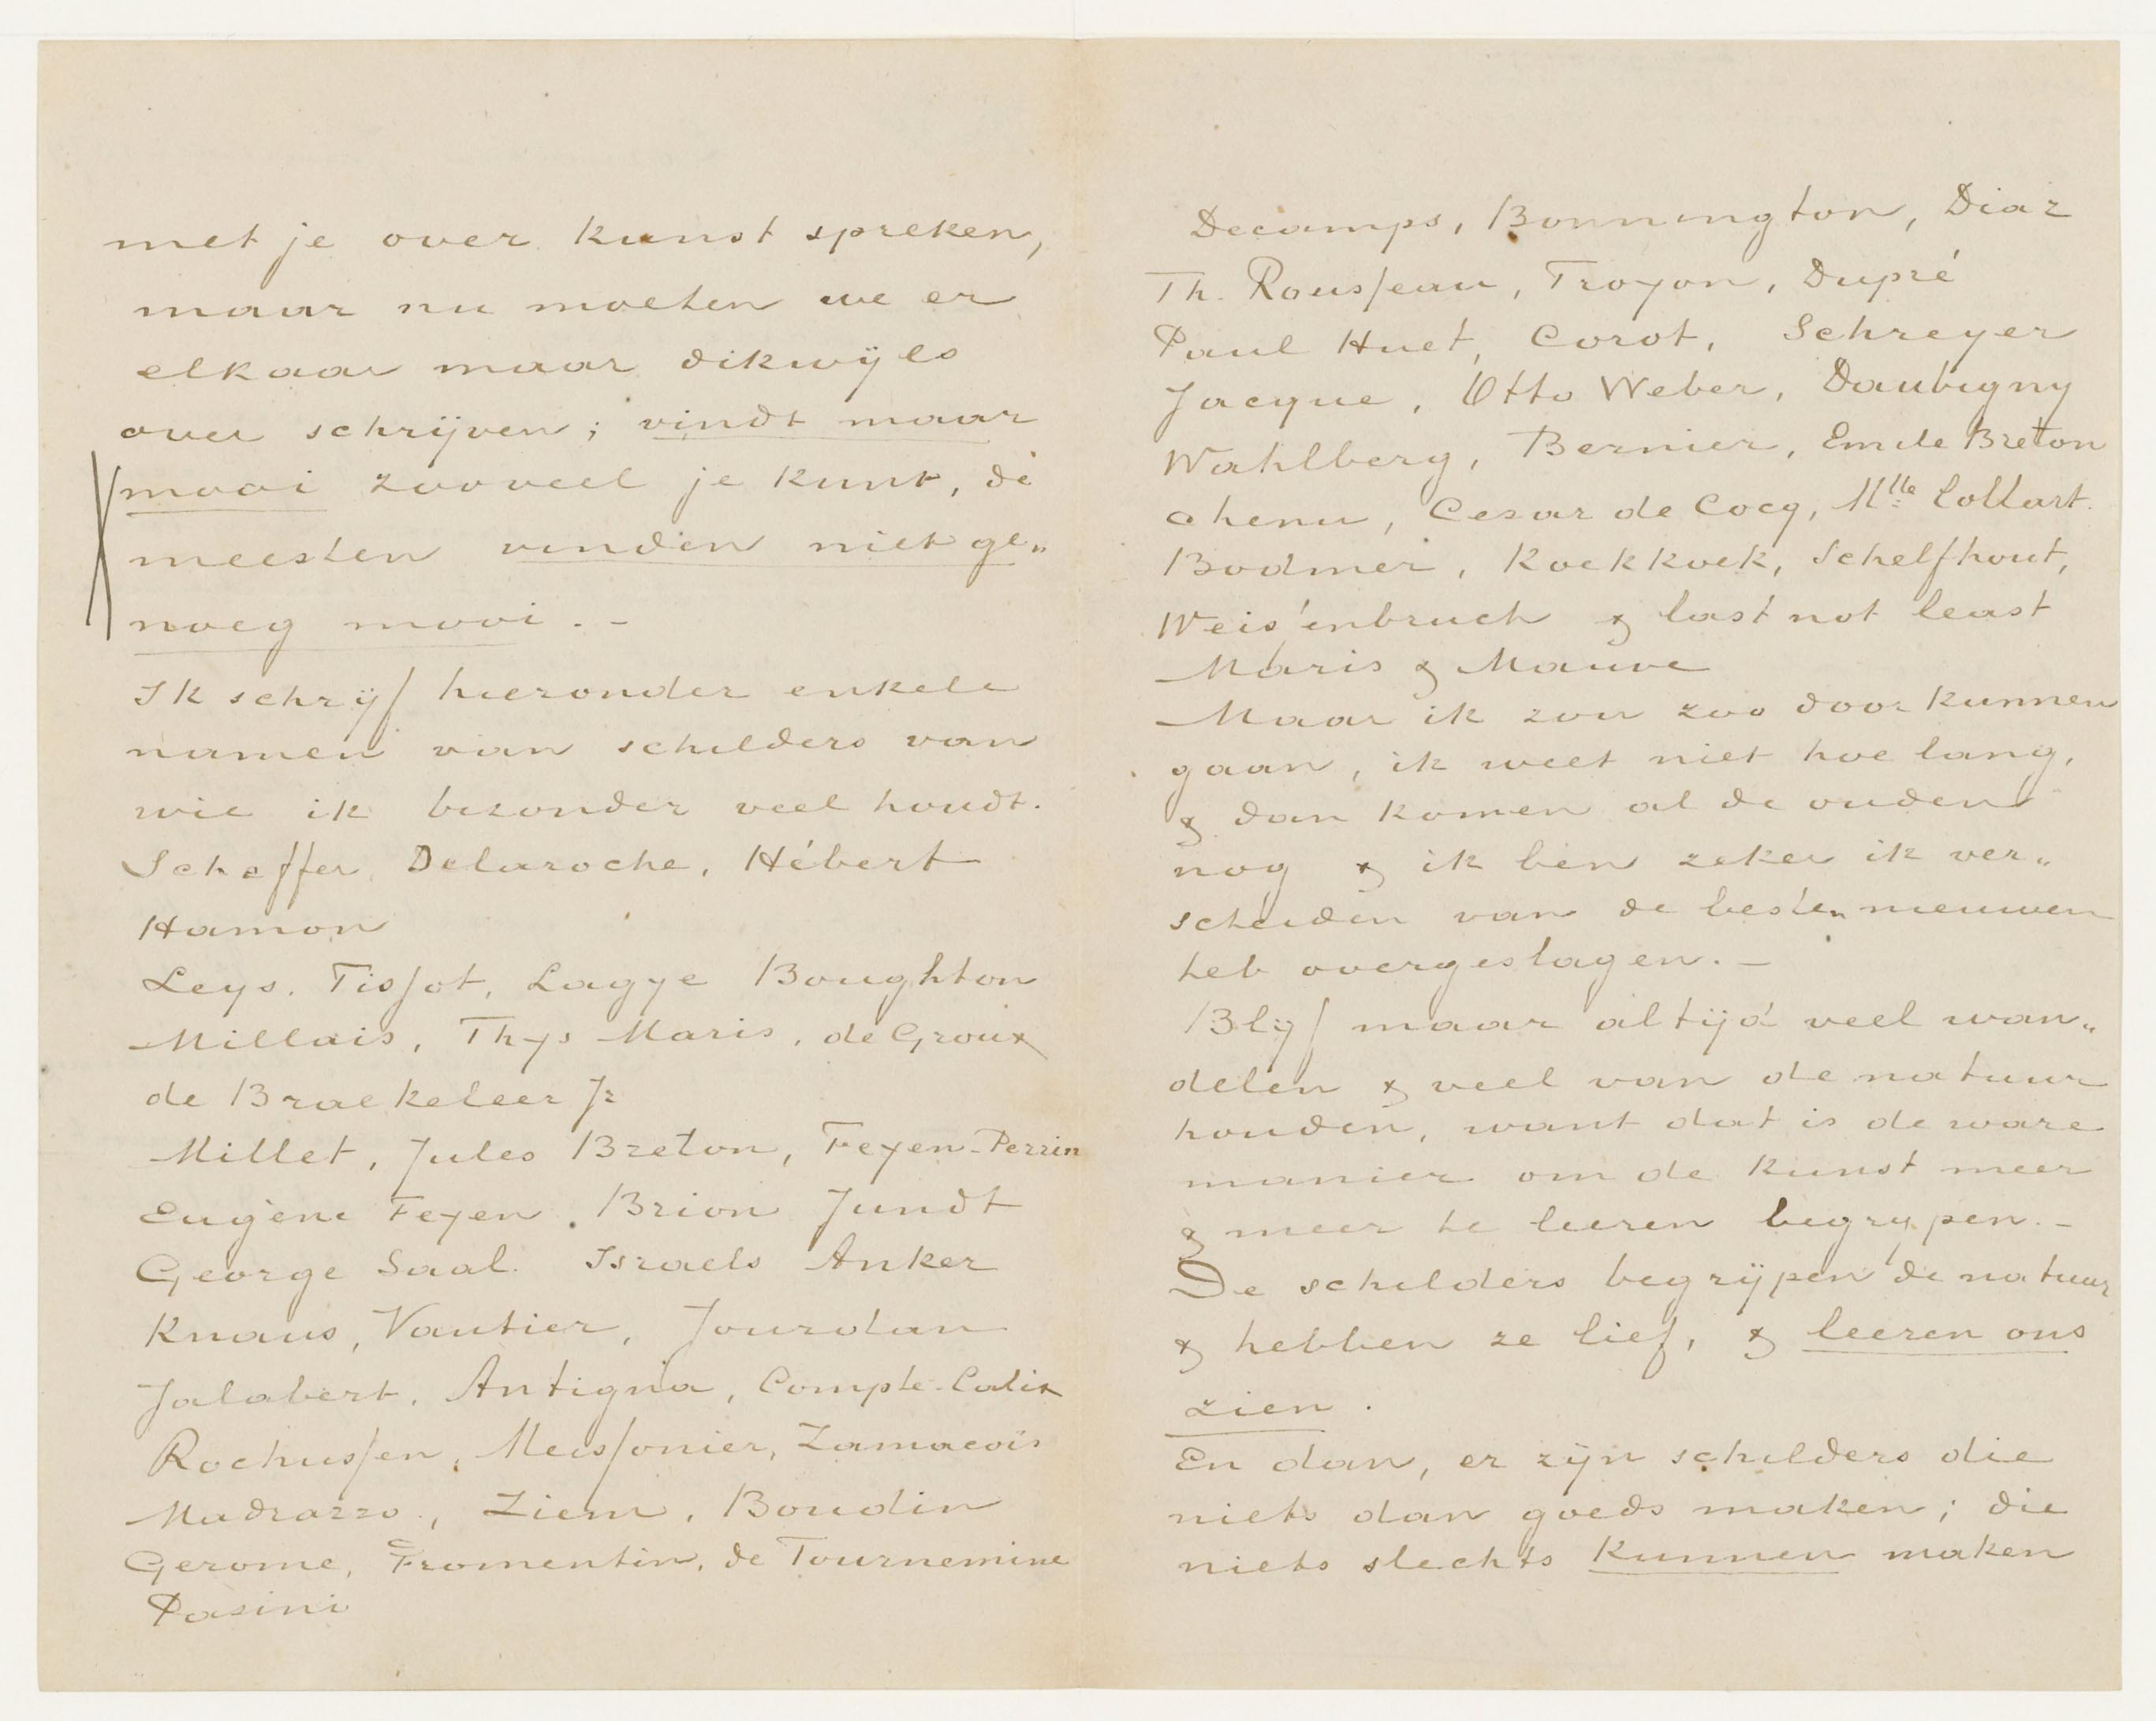 met je over kunst spreken,
maar nu moeten we er
elkaar maar dikwijls
over schrijven; vindt maar
mooi zooveel je kunt, de
meesten vinden niet ge„
noeg mooi. –
Ik schrijf hieronder enkele
namen van schilders van
wie ik bezonder veel houdt.
Scheffer, Delaroche, Hébert
Hamon
Leys. Tissot, Lagye Boughton
Millais, Thys Maris, de Groux
de Braekeleer Jr
Millet, Jules Breton, Feyen-Perrin
Eugène Feyen, Brion Jundt
George Saal. Israels Anker
Knaus, Vautier, Jourdan
Jalabert, Antigna, Compte-Calix
Rochussen, Meissonier, Zamacois
Madrazzo, Ziem, Boudin
Gerome, Fromentin, de Tournemine
Pasini
Decamps, Bonnington, Diaz
Th. Rousseau, Troyon, Dupré
Paul Huet, Corot, Schreyer
Jacque, Otto Weber, Daubigny
Wahlberg, Bernier, Emile Breton
Chenu, Cesar de Cocq, Mlle Collart.
Bodmer, Koekkoek, Schelfhout,
Weissenbruch & last not least
Maris & Mauve
Maar ik zou zoo door kunnen
gaan, ik weet niet hoe lang,
& dan komen al de ouden
nog & ik ben zeker ik ver„
scheiden van de besten nieuwen
heb overgeslagen. –
Blijf maar altijd veel wan„
delen & veel van de natuur
houden, want dat is de ware
manier om de kunst meer
& meer te leeren begrypen. –
De schilders begrijpen de natuur
& hebben ze lief, & leeren ons
zien.
En dan, er zijn schilders die
niets dan goeds maken; die
niets slechts kunnen maken